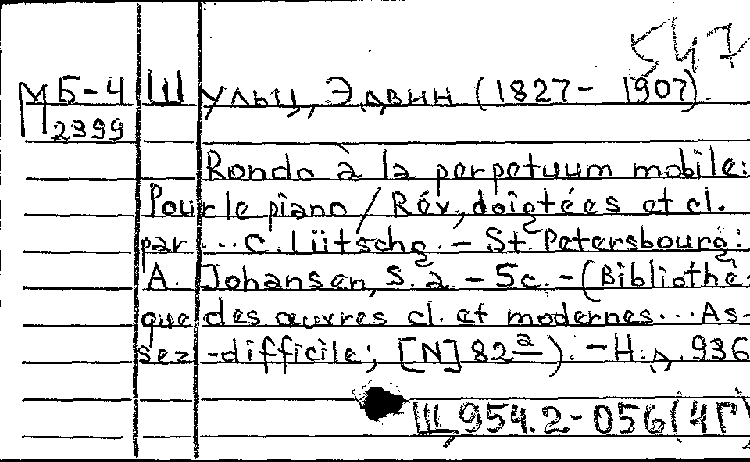 547
М Б-4 Шульц, Эдвин (1827-1907).
П 2399
Rondo à la perpetuum mobile:
Pour le piano / Rév, doigtées et cl.
par ... C. Lütschg. - St Petersbourg:
A. Johansen, S. a. - 5c. - (Bibliothè-
que des œuvres cl. et modernes... As-
sez-difficile; [N] 82а). - Н. д. 936
Щ 954.2-056(4Г)